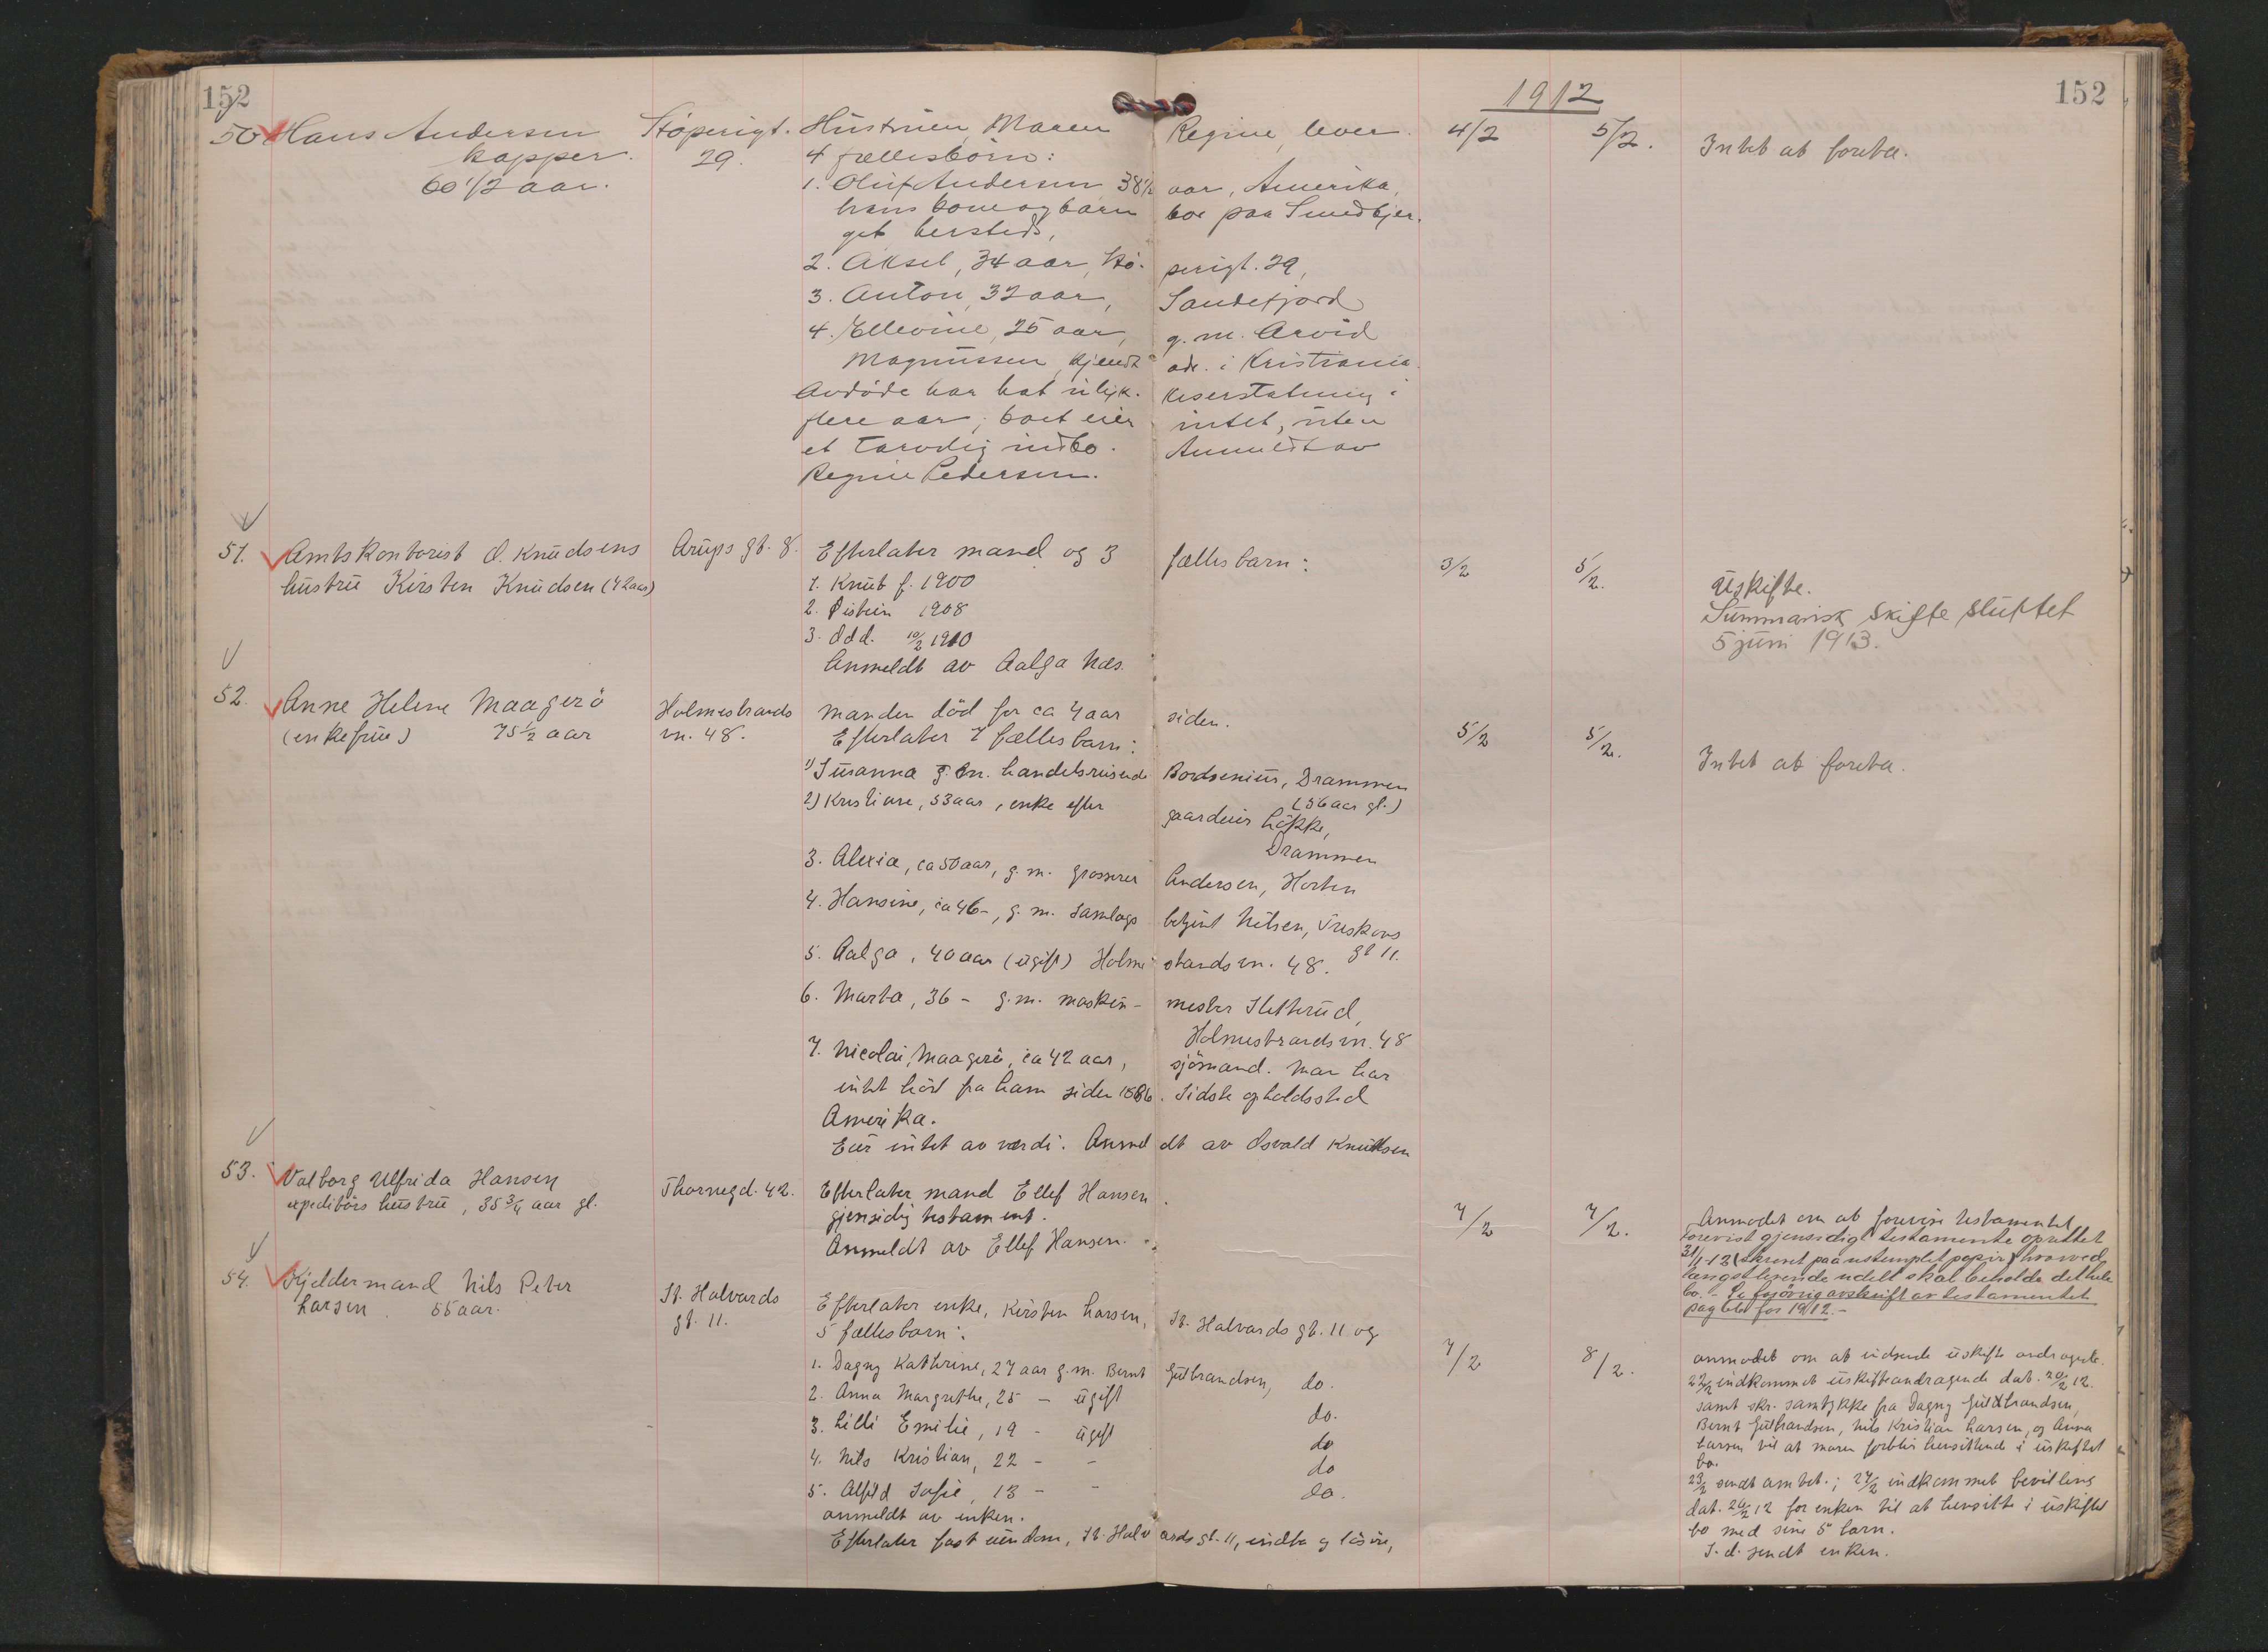 152
1912
152
50 Hans Andersen Støperigt. Hustruen Maren Regine lever. 4/2 5/2. Intet at foreta.
kapper. 29. 4 fællesbörn:
60 1/2 aar. 1. Oluf Andersen 38 1/2 aar, Amerika,
hans kone og barn bor paa Smedbjer-
get hersteds,
2. Aksel, 34 aar, Stö- perigt. 29,
3. Anton, 32 aar, Sandefjord
4. Ellevine, 25 aar, g. m. Arvid
Magnussen, ukjendt adr. i Kristiania.
Avdöde har hat ulyk- keserstatning i
flere aar; boet eier intet, uten
et tarvelig indbo. Anmeldt av
Regine Pedersen.
51. Amtskontorist O. Knudsens Arups gt. 8. Efterlater mand og 3 fællesbarn: 3/2 5/2. Uskifte.
hustru Kirsten Knudsen (42 aar) 1. Knut f. 1900
2. Øistein 1908 Summarisk skifte sluttet
3. Odd. 10/2 1910 5 juni 1913.
Anmeldt av Aalga Næs.
52. Anne Helene Maagerö Holmestrands manden död for ca 4 aar siden. 5/2 5/2. Intet at foreta.
(enkefrue) 75 1/2 aar vn. 48. Efterlater 7 fællesbarn:
1) Susanna g. m. handelsreisende Bordsenius, Drammen
(56 aar gl.)
2) Kristiane, 53 aar, enke efter gaardeier Løkke,
Drammen
3. Alexia, ca 50 aar, g. m. grosserer Andersen, Horten
4. Hansine, ca 46 -, g. m. samlags betjent Nilsen, Treskows
gt 11.
5. Aalga, 40 aar (ugift) Holme strands vn. 48.
6. Marta, 36 - g. m. maskin- mester Sletterud,
Holmestrands vn. 48
7. Nicolai Maagerö, ca 42 aar, sjömand. Man har
intet hört fra ham siden 1886. Sidste opholdssted
Amerika.
Eier intet av værdi. Anmel dt av Osvald Knudsen
53. Valborg Ulfrida Hansen Thornegd. 42. Efterlater mand Ellef Hansen. 7/2 7/2. Anmodet om at forevise testamentet
expeditörs hustru, 35 3/4 aar gl. gjensidig testament.
Anmeldt av Ellef Hansen.
Forevist gjensidigt testamente oprettet
31/1-12 (skrevet paa ustemplet papir) hvorved
længstlevende udelt skal beholde det hele
bo. - Se forövrig avskrift av testamentet
pag for 1912. -
54. Kjeldermand Nils Peter St. Halvards Efterlater enke, Kirsten Larsen, St. Halvards gt. 11 og 7/2 8/2.
Larsen 55 aar. gt. 11. 5 fællesbarn:
1. Dagny Kathrine, 27 aar g. m. Bernt Gulbrandsen, do.
2. Anna Margrethe, 25 - ugift do.
3. Lilli Emilie, 19 - ugift do
4. Nils Kristian, 22 - - do
5. Alfild Sofie, 13 - - do.
anmeldt av enken.
Efterlater fast eiendom, St. Halv ards gt. 11, indbo og lösöre,
anmodet om at indsende uskifte andragende.
22/2 indkommet uskifteandragende dat. 20/2 12.
samt skr. samtykke fra Dagny Gulbrandsen,
Bernt Gulbrandsen, Nils Kristian Larsen, og Anna
Larsen til at moren forblir hensittende i uskiftet
bo.
23/2 sendt amtet.; 27/2 indkommet bevilling
dat. 26/2 12 for enken til at hensitte i uskiftet
bo med sine 5 barn.
S. d. sendt enken.